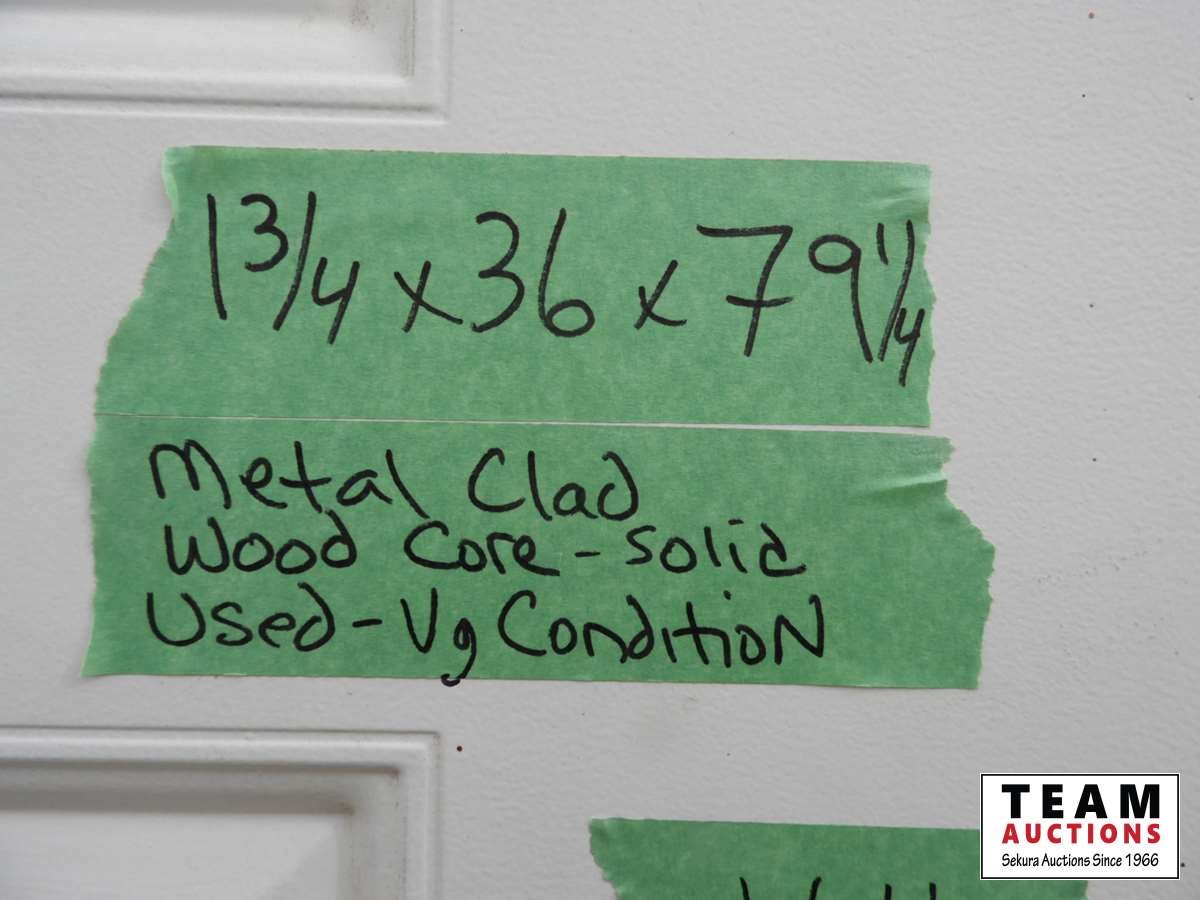 1 3/4 x 36 x 79 1/4
Metal Clad
Wood Core - Solid
Used - Vg Condition
TEAM
AUCTIONS
Sekura Auctions Since 1966